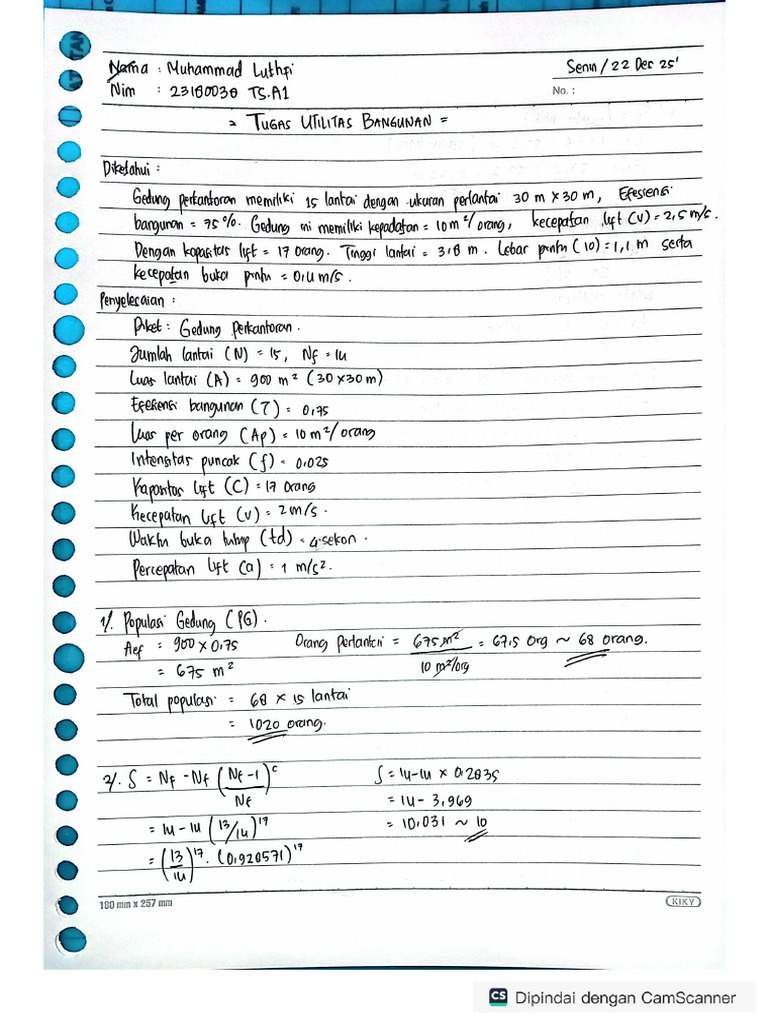 Nama : Muhammad Luthfi
Senin / 22 Des 25'
Nim : 23180038 TS.A1
No. :
= TUGAS UTILITAS BANGUNAN =
Diketahui :
Gedung perkantoran memiliki 15 lantai dengan ukuran perlantai 30 m x 30 m, Efesiensi
bangunan = 75%. Gedung ini memiliki kepadatan = 10 m²/orang, kecepatan lift (V) = 2,5 m/s.
Dengan kapasitas lift = 17 orang. Tinggi lantai = 3,8 m. Lebar pintu (10) = 1,1 m serta
kecepatan buka pintu = 0,4 m/s.
Penyelesaian :
Diket : Gedung Perkantoran.
Jumlah lantai (N) = 15, Nf = 14
Luas lantai (A) = 900 m² (30 x 30 m)
Efesiensi bangunan (τ) = 0,75
Luas per orang (Ap) = 10 m²/orang
Intensitas puncak (f) = 0,025
Kapasitas Lift (C) = 17 orang
Kecepatan Lift (V) = 2 m/s.
Waktu buka tutup (td) = 4 sekon.
Percepatan Lift (a) = 1 m/s².
1/. Populasi Gedung (PG).
Aef = 900 x 0,75
= 675 m²
Orang perlantai = 675 m² / 10 m²/org = 67,5 org ~ 68 orang.
Total populasi = 68 x 15 lantai
= 1020 orang.
2/. S = Nf - Nf (Nf-1 / Nf)^c
= 14 - 14 (13/14)^17
= (13/14)^17 . (0,920571)^17
S = 14 - 14 x 0,2835
= 14 - 3,969
= 10,031 ~ 10
180 mm x 257 mm
KIKY
CS Dipindai dengan CamScanner